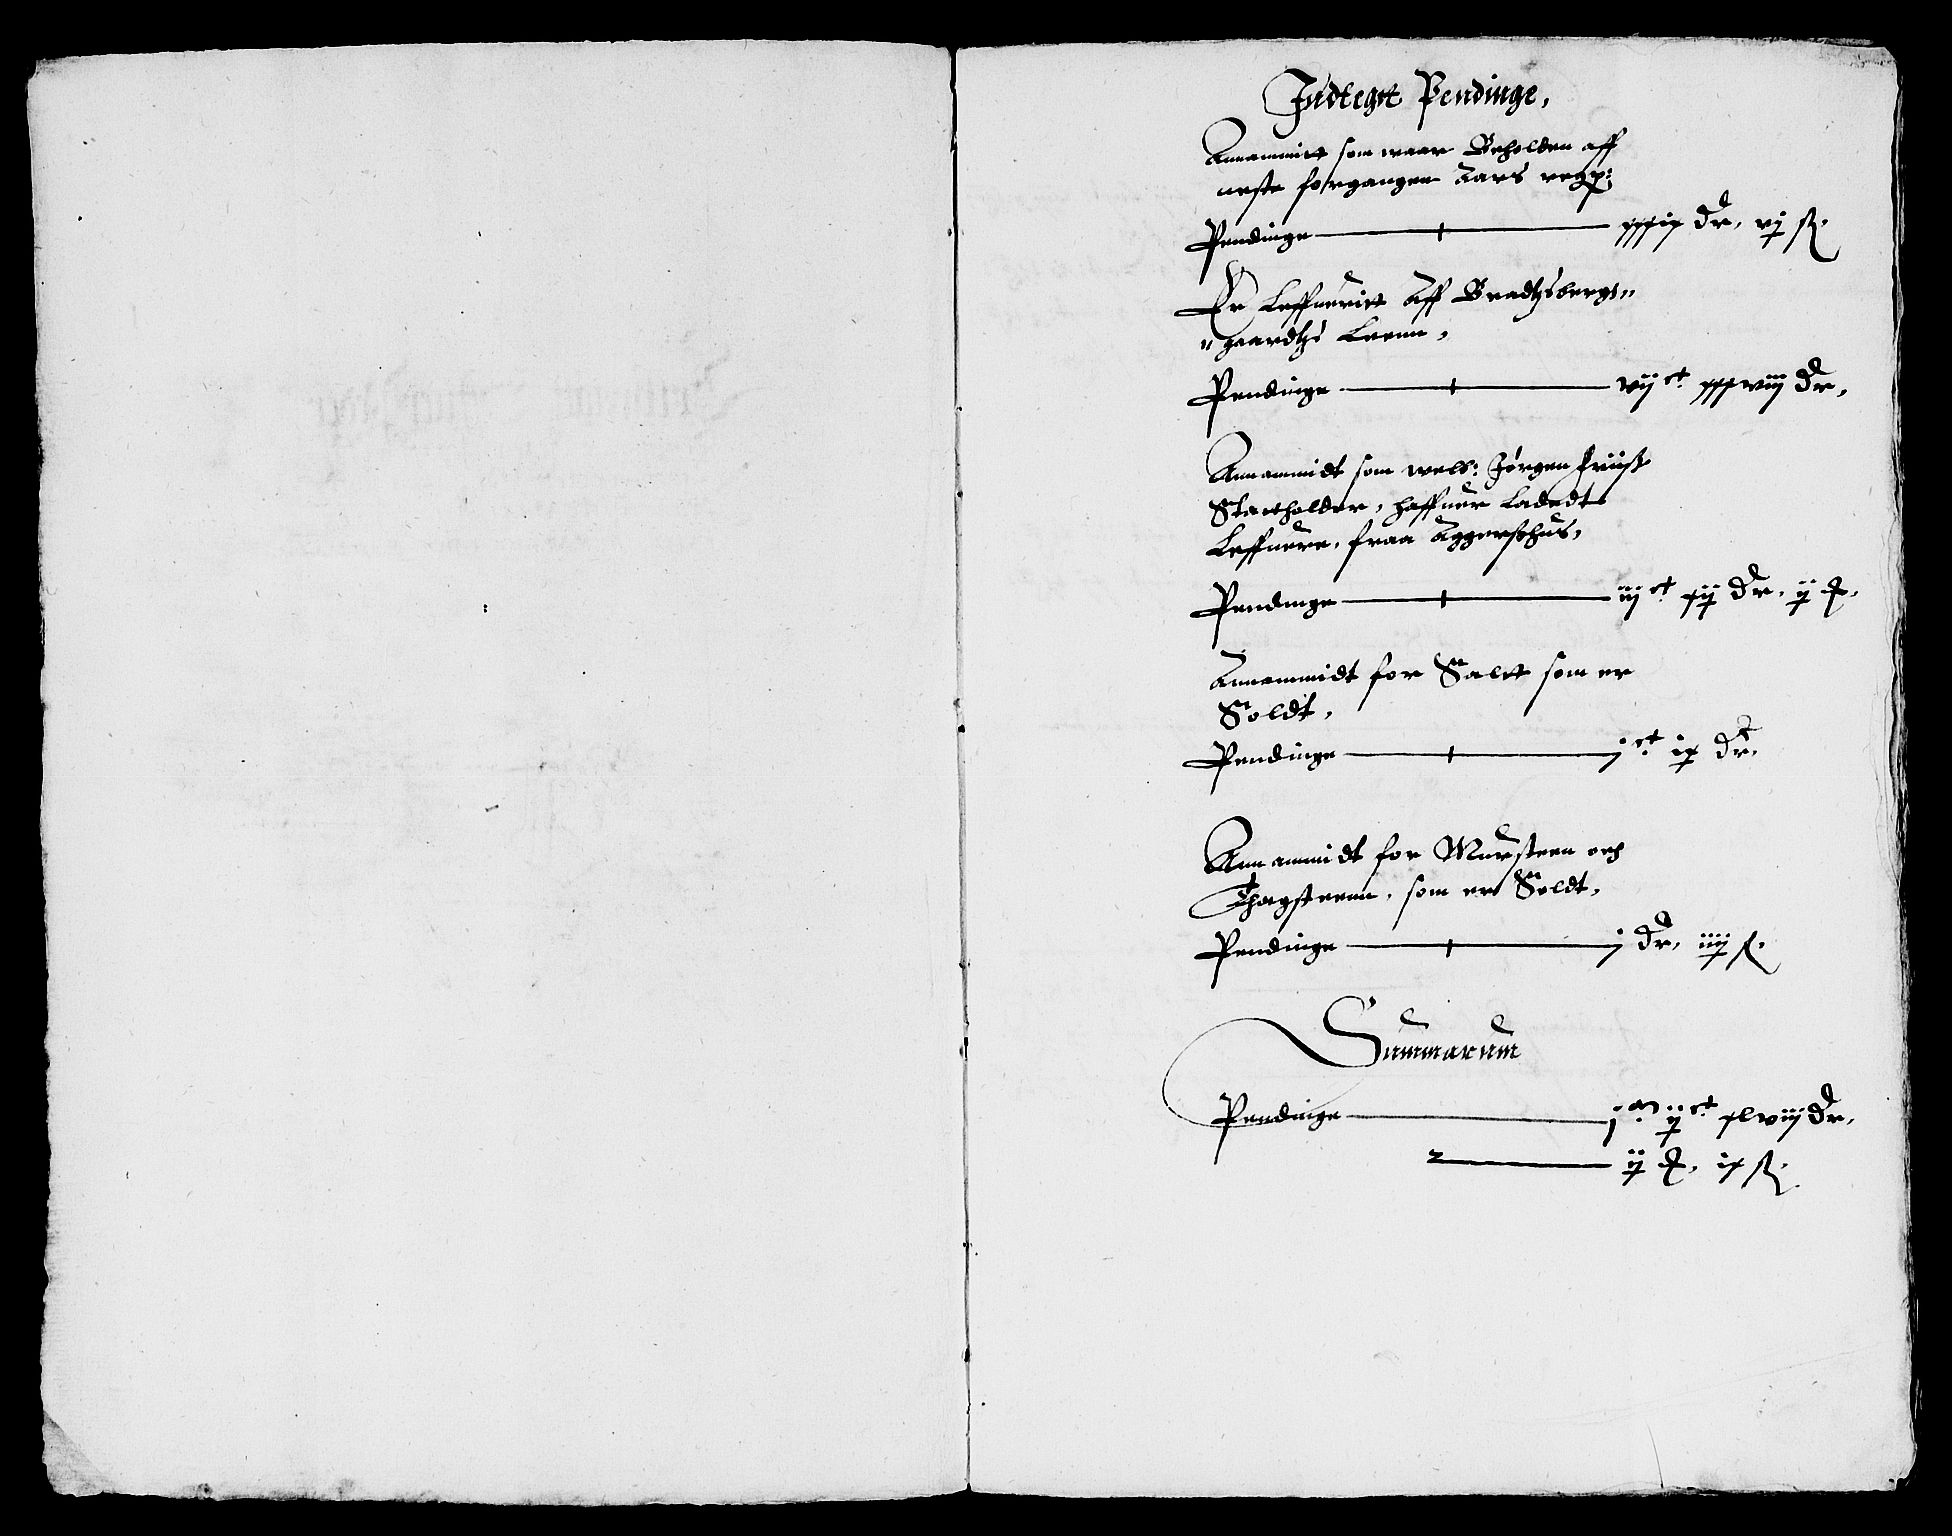 Indtegtt Pendinge,
Annammitt som waar Beholden aff
neste forgangen Aars regsp:
Pendinge xxxix dr, vj sk.
Er Leffueritt Aff Bradtzbergs„
„gaardtzs Leenn,
Pendinge vij ct. xxxviij dr,
Annammidt som welb: Jørgen Friiss
Stattholder, haffuer Ladedt
Leffuere, fraa Aggershus,
Pendinge iij ct. xij dr, ij
Annammidt for Saltt som er
Soldt,
Pendinge j ct. ix dr.
Annammidt for Mursteen och
Thagsteenn, som er Soldt,
Pendinge j dr, iiij sk.
Summarum
Pendinge j m. ij ct. xlviij dr,
ij ix sk.